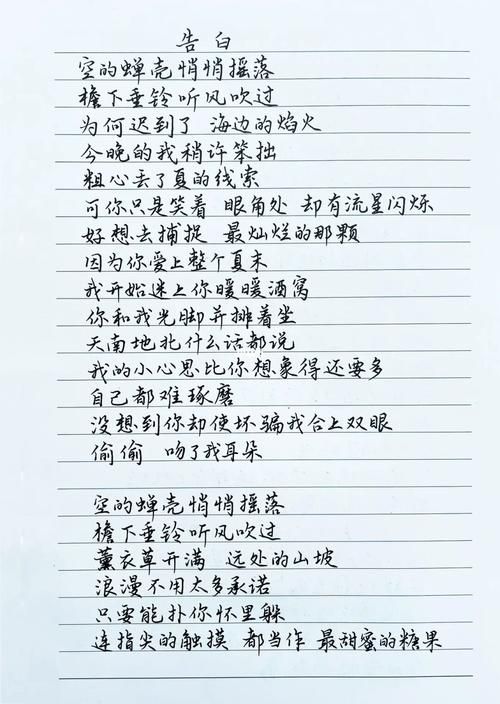 告白
空的蝉壳悄悄摇落
檐下垂铃听风吹过
为何迟到了 海边的焰火
今晚的我稍许笨拙
粗心丢了夏的线索
可你只是笑着 眼角处 却有流星闪烁
好想去捕捉 最灿烂的那颗
因为你爱上整个夏末
我开始迷上你暖暖酒窝
你和我光脚并排着坐
天南地北什么话都说
我的小心思比你想象得还要多
自己都难琢磨
没想到你却使坏骗我合上双眼
偷偷 吻了我耳朵
空的蝉壳悄悄摇落
檐下垂铃听风吹过
薰衣草开满 远处的山坡
浪漫不用太多承诺
只要能扑你怀里躲
连指尖的触摸 都当作 最甜蜜的糖果